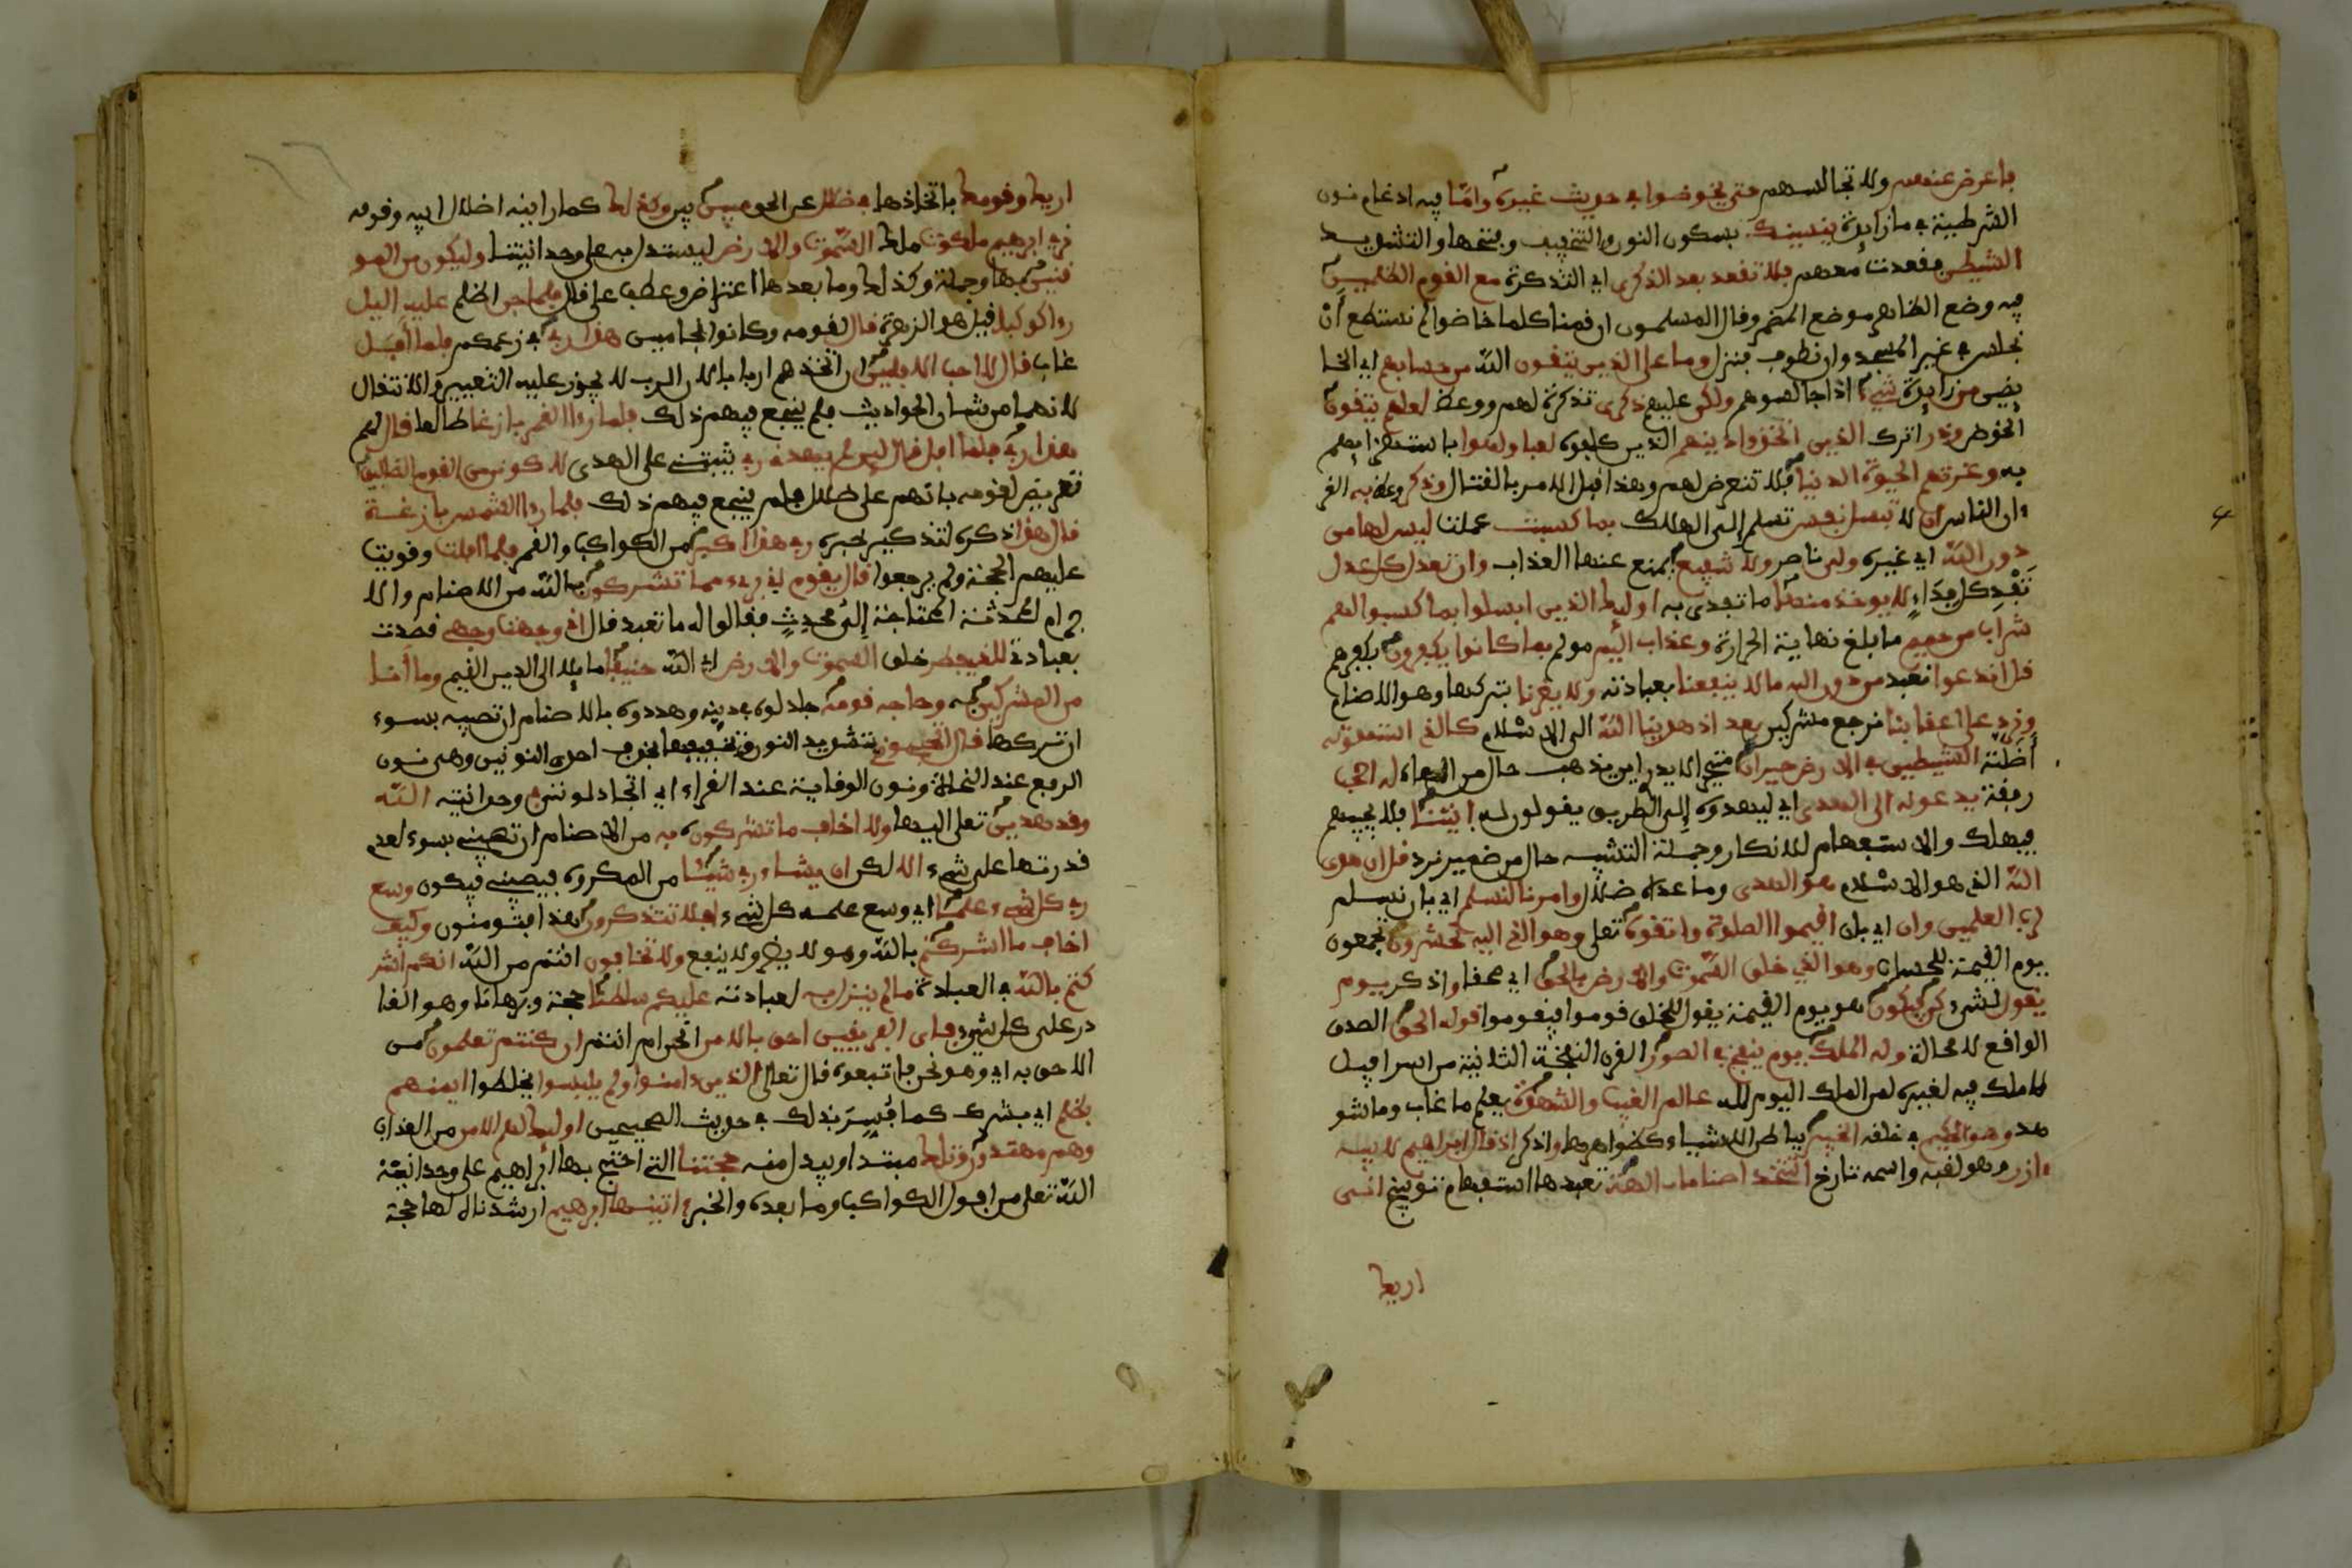 فاعرض عنهم ولا تجالسهم حتى يخوضوا في حديث غيره واما فيه ادغام نون
الشرطية في ما زايدة ينسينك بسكون النون والتخفيف وبفتحها والتشديد
الشيطن فقعدت معهم فلا تقعد بعد الذكرى اي التذكرة مع القوم الظلمين
فيه وضع الظاهر موضع المضمر وقال المسلمون ان قمنا كلما خاضوا لم نستطع أن
نجلس في غير المسجد وان نطوف فنزل وما على الذين يتقون الله من حسابهم اي الخا
يضين من زايدة شيء اذا جالسوهم ولكن عليهم ذكرى تذكرة لهم ووعظ لعلهم يتقون
الخوض وذر اترك الذين اتخذوا دينهم الذين كلفوه لعبا ولهوا باستهزايهم
به وغرتهم الحيوة الدنيا فلا تتعرض لهم وهذا قبل الامر بالقتال وذكر وعظ به القر
ءان الناس ان لا تبسل نفس تسلم إلى الهلاك بما كسبت عملت ليس لها من
دون الله اي غيره ولي ناصر ولا شفيع يمنع عنها العذاب وان تعدل كل عدل
تَفْدِ كل فِدَاءٍ لا يوخذ منها ما تفدى به اوليك الذين ابسلوا بما كسبوا لهم
شراب من حميم ما بلغ نهاية الحرارة وعذاب اليم مولم بما كانوا يكفرون بكفرهم
قل اندعوا نعبد من دون الله ما لا ينفعنا بعبادته ولا يضرنا بتركها وهو الاصنام
ونرد على اعقابنا نرجع مشركين بعد اذ هدينا الله الى الاسلام كالذي استهوته
أضلته الشيطين في الارض حيران متحيرا لا يدري اين يذهب حال من الهاء له اصحب
رفقة يدعونه الى الهدى اي ليهدوه إلى الطريق يقولون له ايتنا فلا يجيبهم
فيهلك والاستفهام للانكار وجملة التشبيه حال من ضمير نرد قل ان هدى
الله الذي هو الاسلام هو الهدى وما عداه ضلال وامرنا لنسلم اي بان نسلم
لرب العلمين وان اي بان اقيموا الصلوة واتقوه تعلى وهو الذي اليه تحشرون تجمعون
يوم القيمة للحساب وهو الذي خلق السموت والارض بالحق اي محقا واذكر يوم
يقول للشيء كن فيكون هو يوم القيمة يقول للخلق قوموا فيقوموا قوله الحق الصدق
الواقع لا محالة وله الملك يوم ينفخ في الصور القرن النفخة الثانية من اسرافيل
لا ملك فيه لغيره لمن الملك اليوم لله عالم الغيب والشهدة يعلم ما غاب وما شو
هد وهو الحكيم في خلقه الخبير بباطن الاشياء كظواهرها واذكر اذ قال ابراهيم لابيه
ءازر هو لقبه واسمه تارخ اتتخذ اصناما ءالهة تعبدها استفهام توبيخ اني
اريك
اريك وقومك باتخاذها في ضلل عن الحق مبين بين وكذلك كما ارينه اضلال ابيه وقومه
نري ابرهيم ملكوت ملك السموت والارض ليستدل به على وحدانيتنا وليكون من المو
قنين بها وجملة وكذلك وما بعدها اعتراض وعطف على قال فلما جن اظلم عليه اليل
رءا كوكبا قيل هو الزهرة قال لقومه وكانوا نجامين هذا ربي في زعمكم فلما أفل
غاب قال لا احب الافلين ان اتخذهم اربابا لان الرب لا يجوز عليه التغيير والانتقال
لانهما من شان الحوادث فلم ينجع فيهم ذلك فلما رءا القمر بازغا طالعا قال لهم
هذا ربي فلما افل قال لين لم يهدني ربي يثبتني على الهدى لاكونن من القوم الضالين
تعريض لقومه بانهم على ضلال فلم ينجع فيهم ذلك فلما رءا الشمس بازغة
قال هذا ذكره لتذكير خبره ربي هذا اكبر من الكواكب والقمر فلما افلت وقويت
عليهم الحجة ولم يرجعوا قال يقوم اني بريء مما تشركون بالله من الاصنام والا
جرام المحدثة المحتاجة إلى محدِثٍ فقالوا له ما تعبد قال اني وجهت وجهي قصدت
بعبادتي للذي فطر خلق السموت والارض اي الله حنيفا مايلا الى الدين القيم وما أنا
من المشركين به وحاجه قومه جادلوه في دينه وهددوه بالاصنام ان تصيبه بسوء
ان تركها قال اتحجوني بتشديد النون وتخفيفها بحذف احدى النونين وهي نون
الرفع عند النحاة ونون الوقاية عند الفراء اي اتجادلونني في وحدانيته الله
وقد هدين تعلى اليها ولا اخاف ما تشركون به من الاصنام ان تصيبني بسوء لعدم
قدرتها على شيء الا لكن ان يشاء ربي شيئا من المكروه يصيبني فيكون وسع
ربي كل شيء علما اي وسع علمه كل شيء افلا تتذكرون هذا فتومنون وكيف
اخاف ما اشركتم بالله وهو لا يضر ولا ينفع ولا تخافون انتم من الله انكم اشر
كتم بالله في العبادة ما لم ينزل به لعبادته عليكم سلطنا حجة وبرهانا وهو القا
در على كل شيء فاي الفريقين احق بالامن انحن ام انتم ان كنتم تعلمون من
الاحق به اي وهو نحن فاتبعوه قال تعالى الذين ءامنوا ولم يلبسوا يخلطوا ايمنهم
بظلم اي بشرك كما فُسِّرَ بذلك في حديث الصحيحين اوليك لهم الامن من العذاب
وهم مهتدون وتلك مبتدا ويبدل منه حجتنا التي احتج بها ابراهيم على وحدانية
الله تعلى من افول الكواكب وما بعده والخبر ءاتينها ابرهيم ارشدناه لها حجة